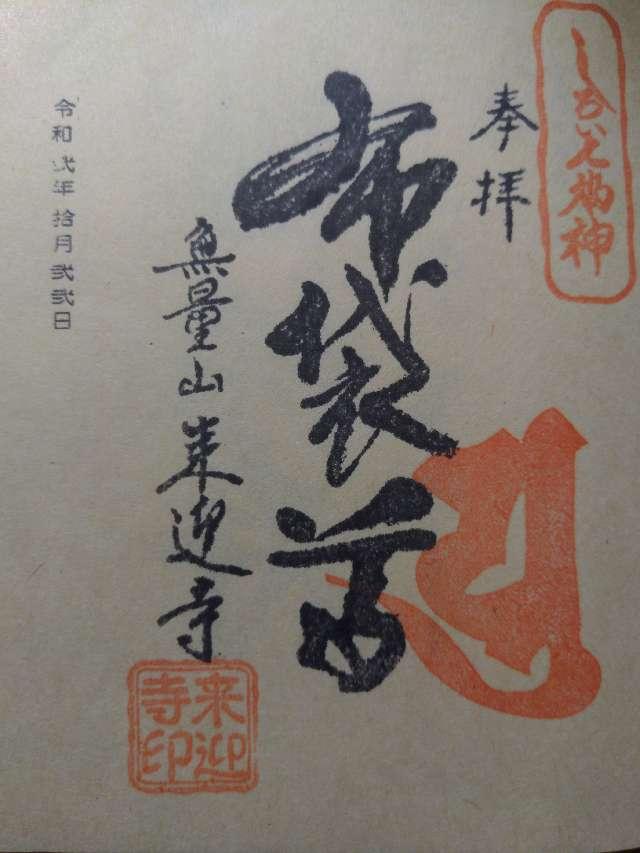 しろい七福神
奉拝
布袋尊
無量山来迎寺
来迎寺印
令和弐年拾月弐弐日